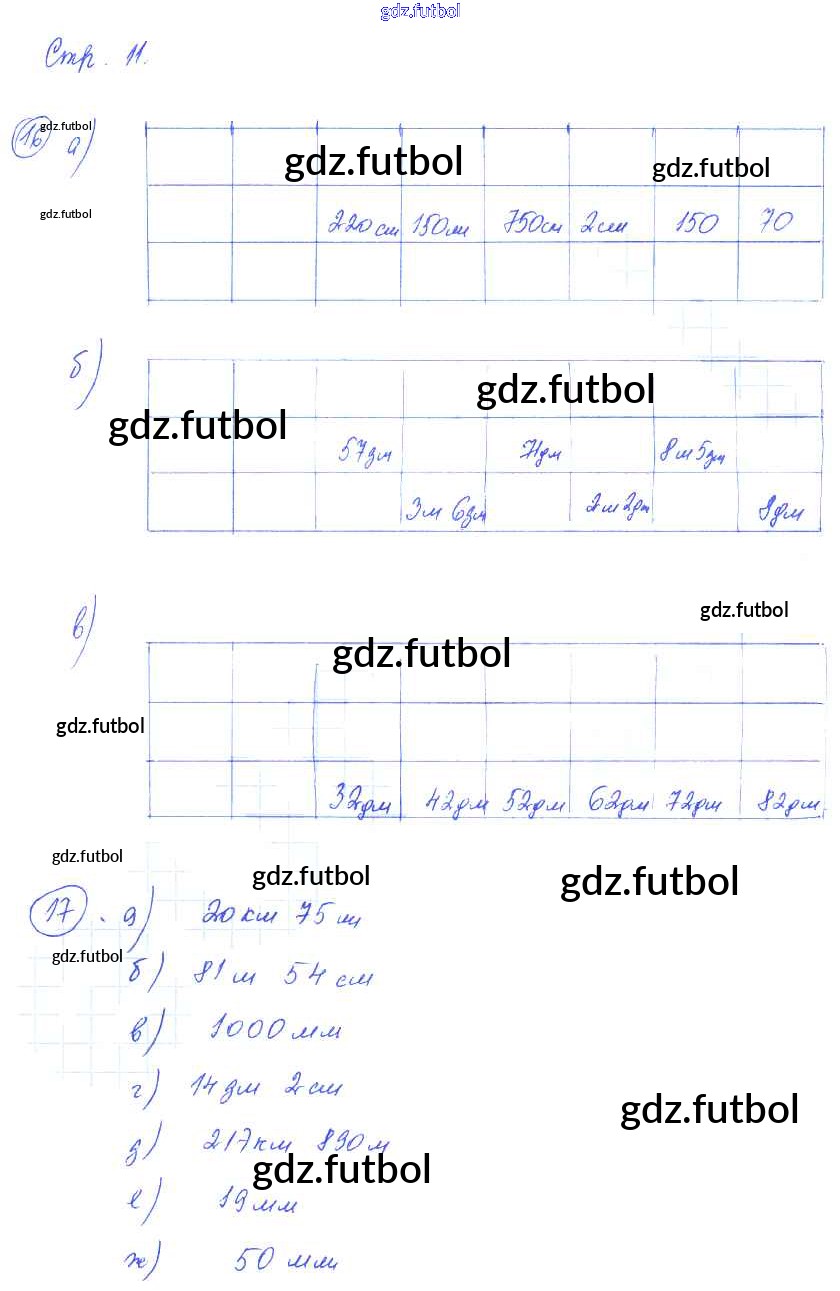 gdz.futbol
Стр. 11.
16 а)
gdz.futbol
gdz.futbol
gdz.futbol
gdz.futbol
220 см 150 мм 750 см 2 см 150 70
б)
gdz.futbol
gdz.futbol
57 дм 71 дм 8 м 5 дм
3 м 6 дм 2 м 2 дм 8 дм
в)
gdz.futbol
gdz.futbol
gdz.futbol
32 дм 42 дм 52 дм 62 дм 72 дм 82 дм
gdz.futbol
gdz.futbol
gdz.futbol
17. а) 20 км 75 м
gdz.futbol
б) 81 м 54 см
в) 1000 мм
г) 14 дм 2 см
gdz.futbol
д) 217 км 830 м
gdz.futbol
е) 19 мм
ж) 50 мм